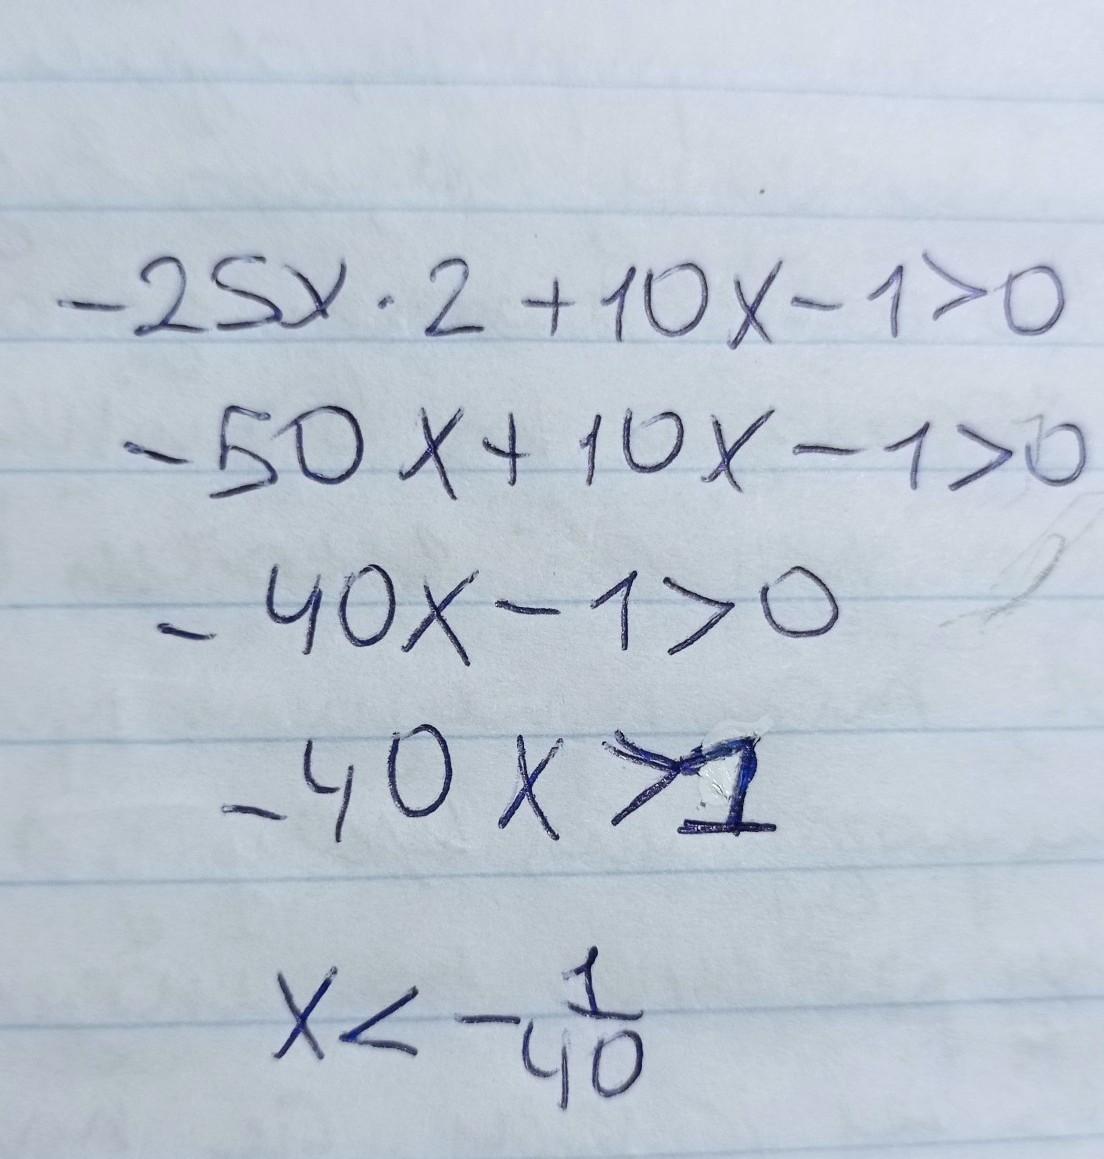 -25x·2+10x-1>0
-50x+10x-1>0
-40x-1>0
-40x>1
x<-1/40